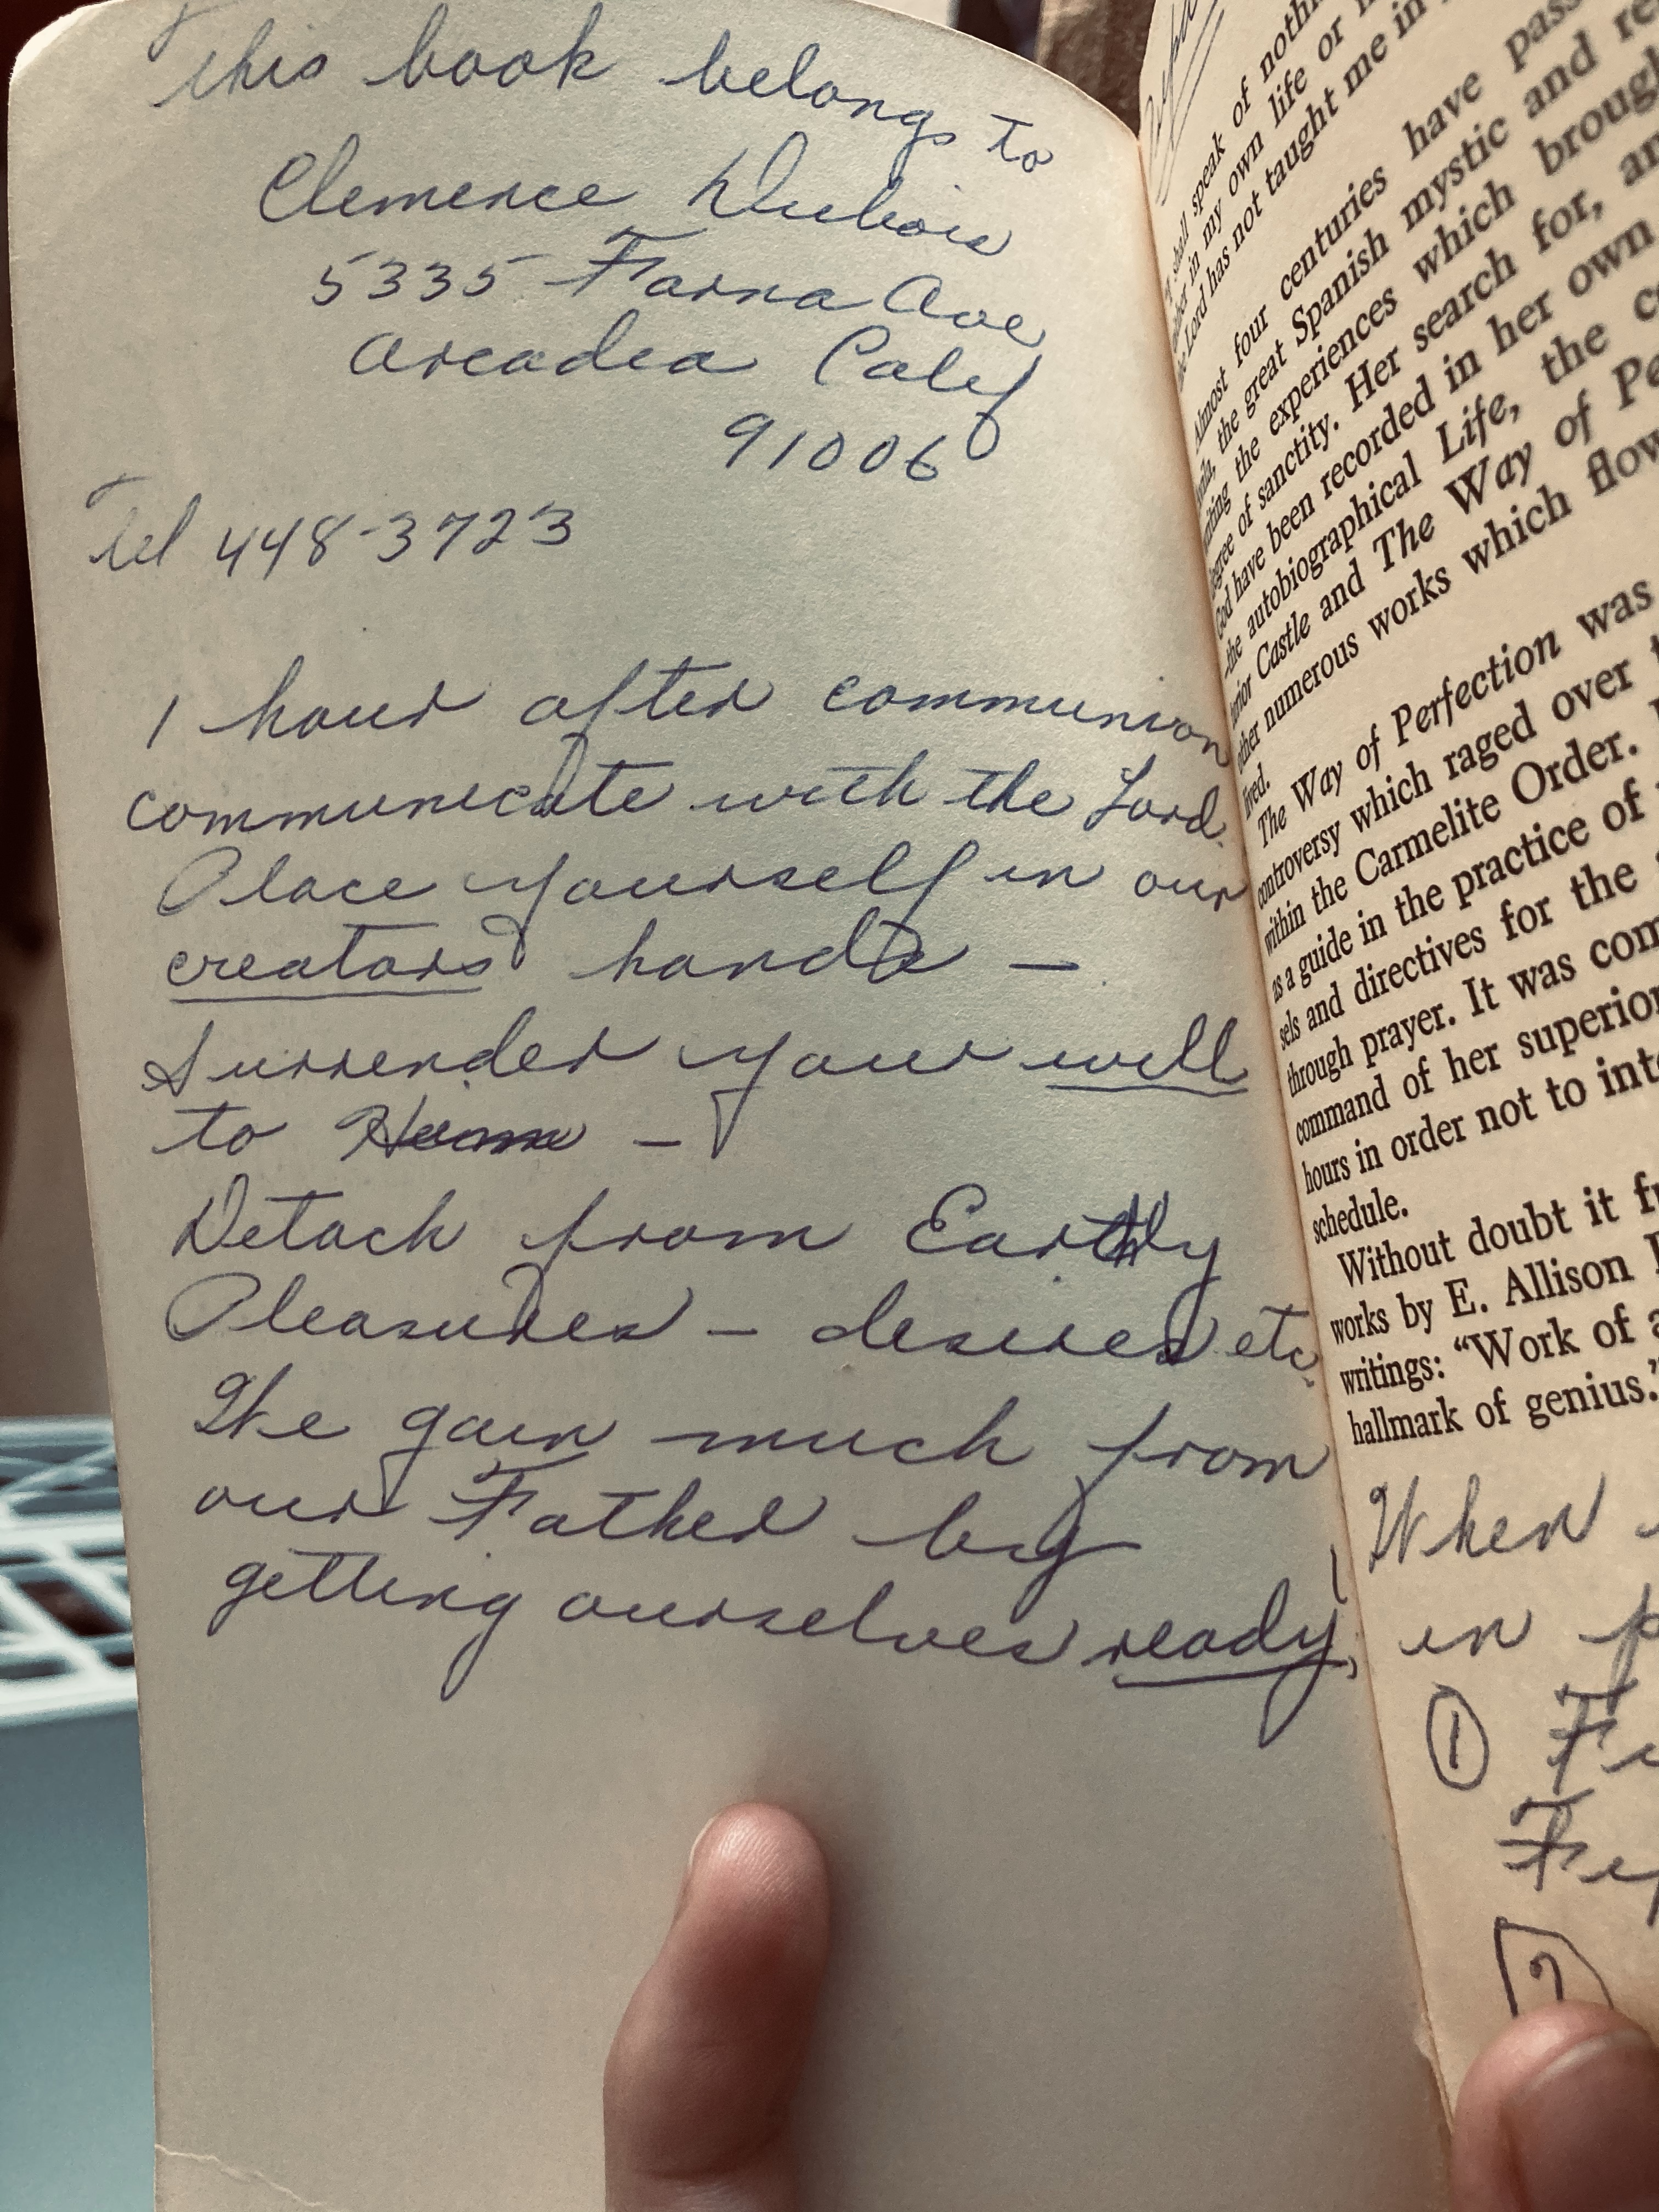 This book belongs to
Clemence Dubois
5335 Farna Ave
Arcadia Calif
91006
Tel 448-3723
1 hour after communion
communicate with the Lord.
Place yourself in our
creators hands —
Surrender your will
to Him —
Detach from Earthly
Pleasures — desires etc.
We gain much from
our Father by
getting ourselves ready,
shall speak of nothi
in my own life or
the Lord has not taught me in
Almost four centuries have pass
the great Spanish mystic and re
the experiences which brough
degree of sanctity. Her search for, an
God have been recorded in her own
the autobiographical Life, the
Castle and The Way of Pe
other numerous works which flow
lived.
The Way of Perfection was
controversy which raged over
within the Carmelite Order.
as a guide in the practice of
sels and directives for the
through prayer. It was com
command of her superior
hours in order not to inte
schedule.
Without doubt it fr
works by E. Allison
writings: "Work of a
hallmark of genius."
When
in p
① Fr